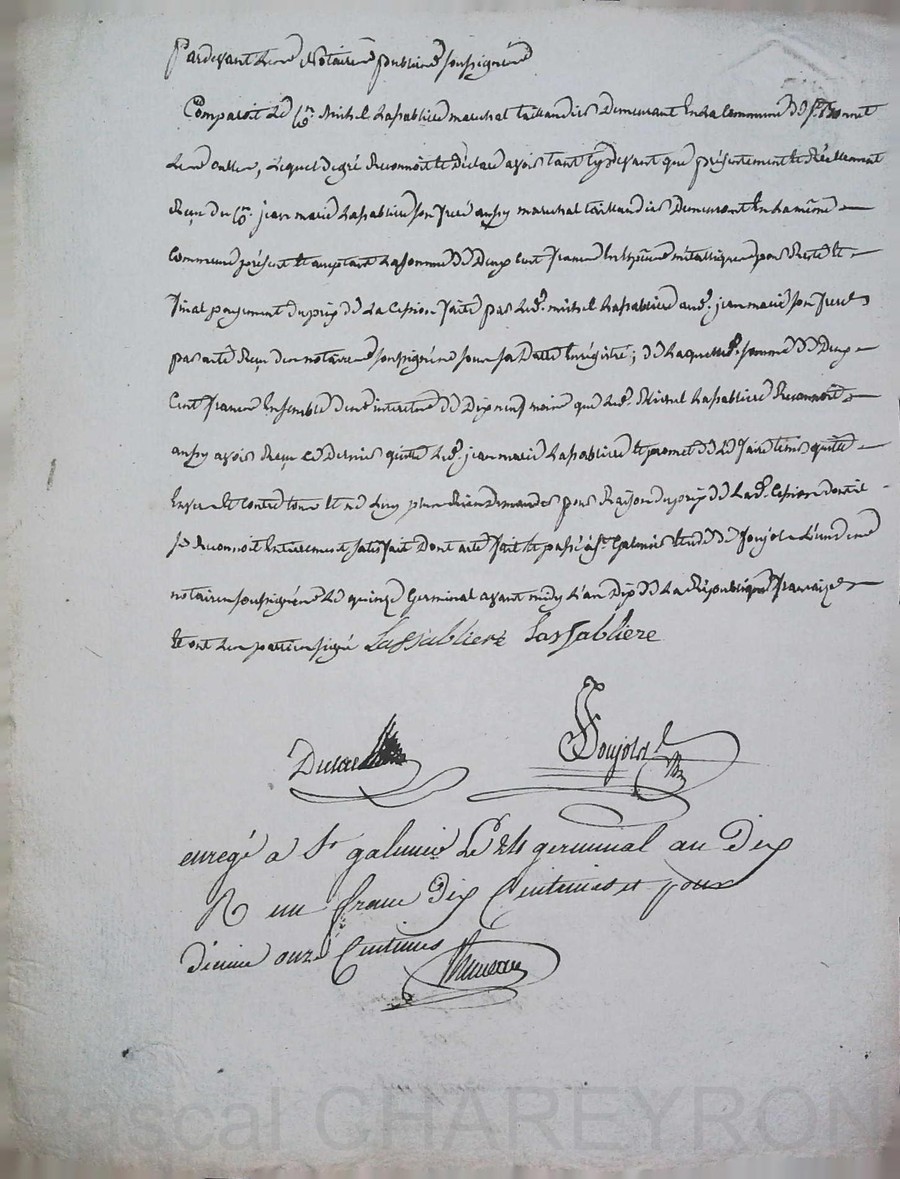 Pardevant les Notaires publics soussignés
Comparoit le Cn. Michel Lassabliere marechal taillandier demeurant en la commune de St. Bonnet
les oulles, lequel de gré reconnoit et declare avoir tant cydevant que présentement et réellement
reçu du Cn. jean marie Lassabliere son frere aussy marechal taillandier demeurant en la même
commune présent et acceptant la somme de deux cent francs en espèces métalliques pour reste et
final payement du prix de la cession faite par led. michel Lassabliere aud. jean marie son frere
par acte reçu des notaires soussignés sous sa datte enregistré; de laquelle d. somme de deux
cent francs ensemble des interets de dix neuf mois que led. Michel Lassabliere reconnoit
aussy avoir reçu ce dernier quitte led. jean marie Lassabliere et promet de le faire tenir quitte
envers et contre tous et ne luy plus rien demander pour raison du prix de lad. cession dont il
se reconnoit entierement satisfait dont acte fait et passé à St. Galmier etude de Soujols l'un des
notaires soussignés le quinze Germinal avant midy l'an dix de la République française
et ont les parties signé Lassabliere Lassabliere
Soujols
enregé a St galmier Le 24 germinal an Dix
R un franc Dix Centimes et pour
décime onze Centimes
Pascal CHAREYRON